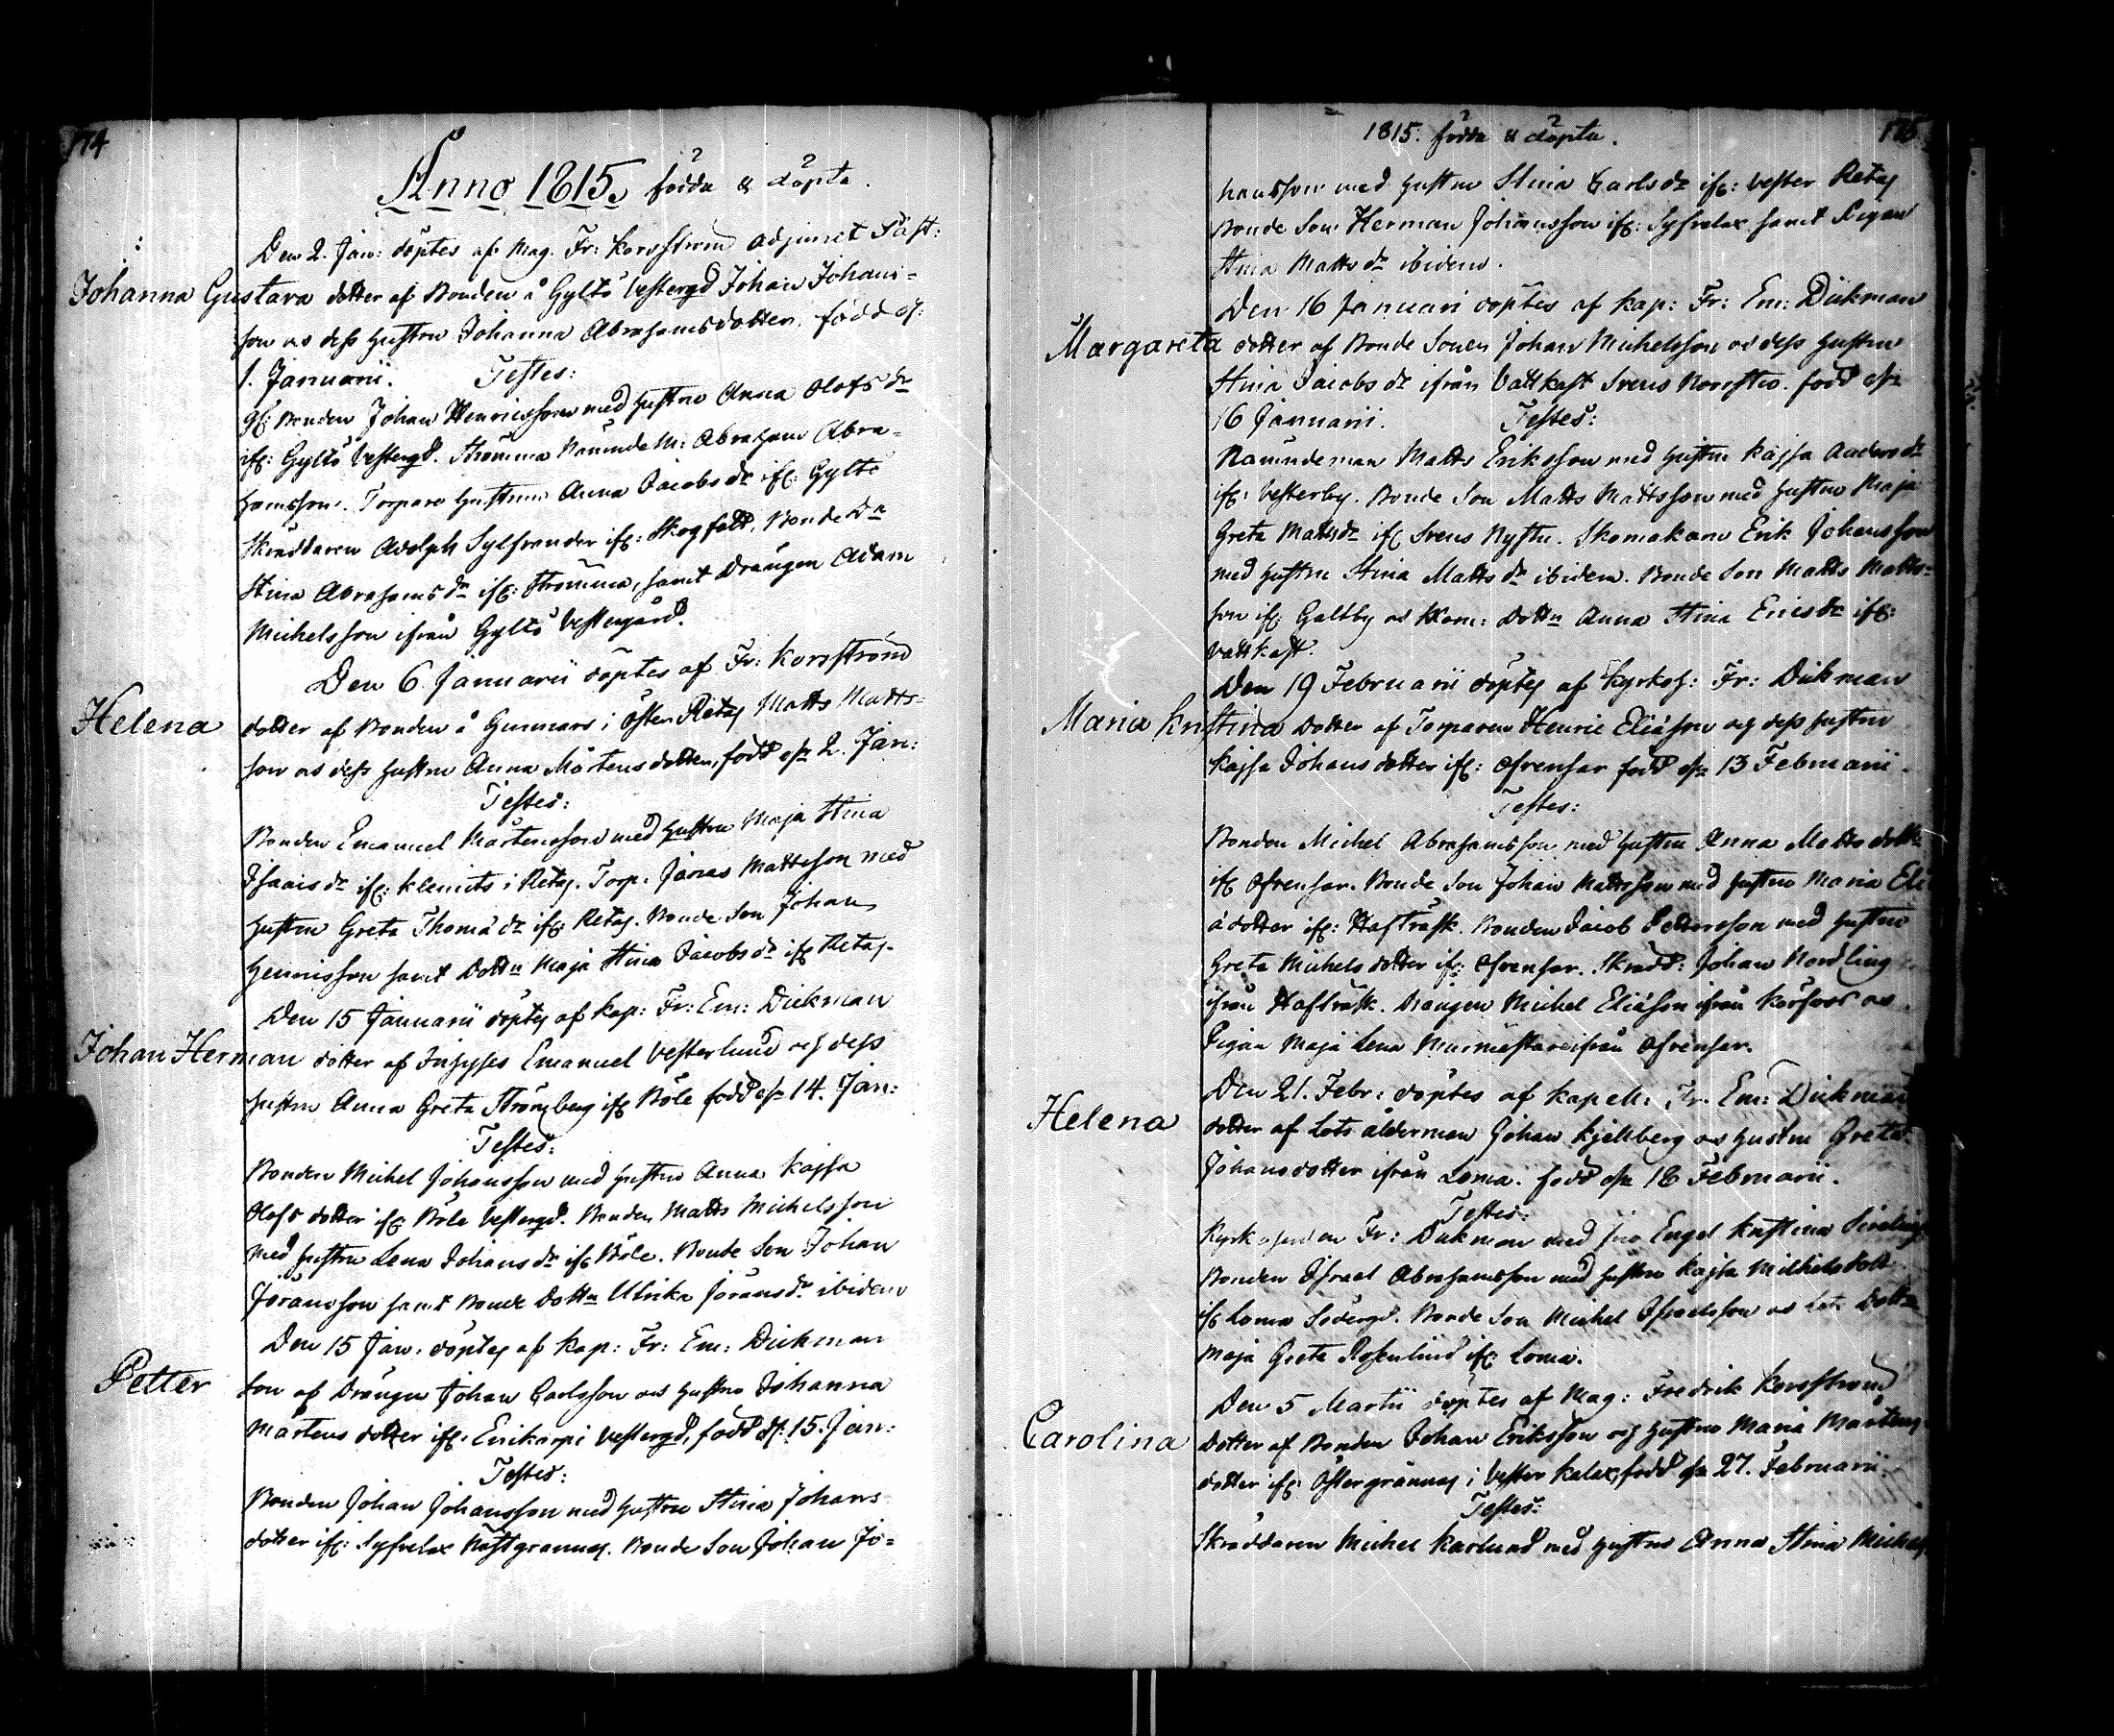 174
Anno 1815, födda & döpta.
Den 2. Jan: döptes af Mag. Fr: Korsström adjunct Past:
Johanna Gustava dotter af Bonden å Gyltö Vestergd Johan Johans-
son os dess hustru Johanna Abrahamsdotter, född d:
1. Januarii. Testes:
Bonden Johan Henricsson med hustru Anna Olofs dr
ifr: Gyltö Vestergd. Strömma Nämnde M: Abraham Abra-
hamsson. Torpare hustrun Anna Jacobs dr ifr: Gyltö
Skräddaren Adolph Sylfvander ifr: Skogfält, Bonde Dn
Stina Abrahams dr ifr: Strömma, samt Drängen Adam
Michelsson ifrån Gyltö Vestergård.
Den 6. Januarii döptes af Fr: Korsström
Helena dotter af Bonden å Gunnars i Öster Retaj Matts Matts-
son os dess hustru Anna Mårtens dotter, född d: 2. Jan:
Testes:
Bonden Emanuel Mårtensson med hustru Maja Stina
Isaacs dr ifr: Klemets i Retaj. Torp. Jonas Mattsson med
hustru Greta Thoma dr ifr: Retaj. Bonde Son Johan
Hennisson samt Dottn Maja Stina Jacobs dr ifr Retaj.
Den 15 Januarii döptes af Kap: Fr: Em: Dickman
Johan Herman dotter af Inhyses Emanuel Vesterlund och dess
hustru Anna Greta Strömberg ifr Böle född d: 14. Jan:
Testes:
Bonden Michel Johansson med hustru Anna Kajsa
Olofs dotter ifr: Böle Vestergd. Bonden Matts Michelsson
med hustru Lena Johans dr ifr Böle. Bonde Son Johan
Göransson samt Bonde Dottn Ulrika Jörans dr ibidem
Den 15 Jan. döptes af Kap: Fr: Em: Dickman
Petter son af Drängen Johan Carlsson os hustru Johanna
Mårtens dotter ifr: Erikarpi Vestergd, född d: 15. Jan:
Testes:
Bonden Johan Johansson med hustru Stina Johans
dotter ifr: Syfvelax Nästgrannas. Bonde Son Johan Jo-
1815. födda & döpta. 175
hansson med hustru Stina Carls dr ifr: Vester Retaj
Bonde Son Herman Johansson ifr: Syfvelax samt Pigan
Stina Matts dr ibidem.
Den 16 Januari döptes af Kap: Fr: Em: Dickman
Margareta dotter af Bonde Sonen Johan Michelsson os dess hustru
Stina Jacobs dr ifrån Vattkast Svens Norrstu. född d:
16 Januarii. Testes:
Nämndeman Matts Eriksson med hustru Kajsa Anders dr
ifr: Vesterby. Bonde Son Matts Mattsson med hustru Maja
Greta Matts dr ifr Svens Nystu. Skomakare Erik Johansson
med hustru Stina Matts dr ibidem. Bonde Son Matts Matts-
son ifr: Galtby os Skom: Dottn Anna Stina Erics dr ifr:
Vattkast.
Den 19 Februarii döptes af Kyrkoh: Fr: Dickman
Maria Kristina Dotter af Torparen Henric Eliäson och dess hustru
Kajsa Johans dotter ifr: Ofvensar född d: 13 Februarii.
Testes:
Bonden Michel Abrahamsson med hustru Anna Matts dotter
ifr Ofvensar. Bonde Son Johan Mattsson med hustru Maria Eli
ädotter ifr: Hafträsk. Bonden Jacob Pettersson med hustru
Greta Michels dotter ifr: Ofvensar. Skrädd: Johan Nordling
ifrån Hafträsk. Drängen Michel Eliäson ifrån Korsvos os
Pigan Maja Lena Murmästare ifrån Ofvensar.
Den 21. Febr: döptes af Kapell: Fr. Em: Dickman
Helena dotter af Lots ålderman Johan Kjellberg os hustru Greta
Johansdotter ifrån Loma. född d: 18 Februarii.
Testes:
Kyrkoherden Fr: Dickman med fru Engel Kristina
Bonden Israel Abrahamsson med hustru Kajsa Michelsdott
ifr Loma Södergd. Bonde Son Michel Israelsson os Lots Dottn
Maja Greta Rosenlind ifr: Loma.
Den 5 Martii döptes af Mag: Fredrik Korsström
Carolina dotter af Bonden Johan Eriksson och hustru Maria Mårtens
dotter ifr: Östergrannas i Vester Kalax, född d: 27. Februarii.
Testes:
Skräddaren Michel Karlund med hustru Anna Stina Michels